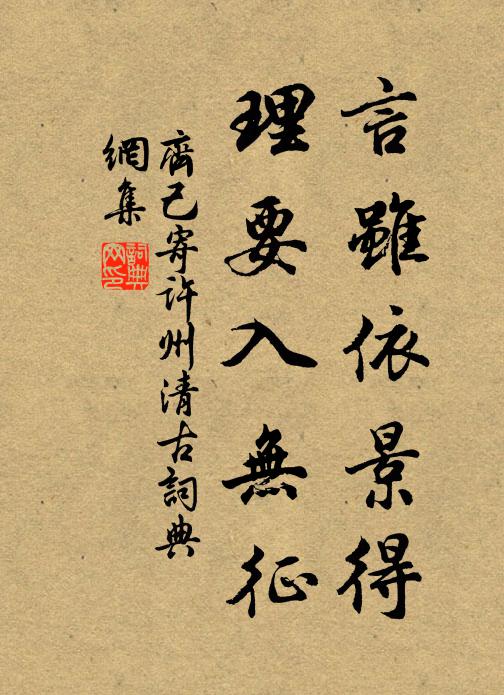 言雖依景得
理要入無征
齊己寄许州清古詞典
網集
詞典网印